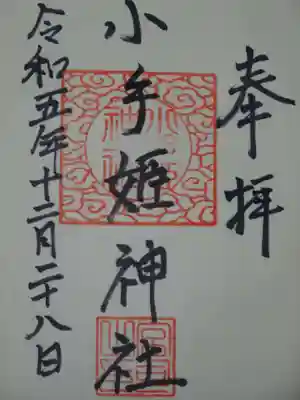 奉拝
小手姫神社
令和五年十二月二十八日